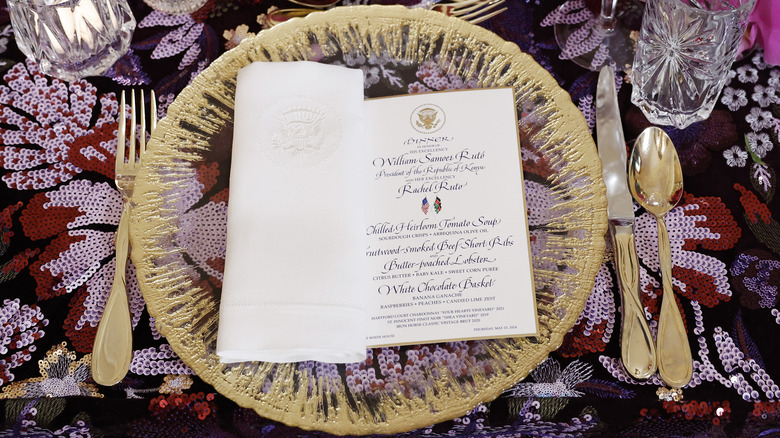 DINNER
IN HONOR OF
HIS EXCELLENCY
William Samoei Ruto
President of the Republic of Kenya
AND HER EXCELLENCY
Rachel Ruto
Chilled Heirloom Tomato Soup
SOURDOUGH CRISPS • ARBEQUINA OLIVE OIL
Fruitwood-smoked Beef Short Ribs
and
Butter-poached Lobster
CITRUS BUTTER • BABY KALE • SWEET CORN PUREE
White Chocolate Basket
BANANA GANACHE
RASPBERRIES • PEACHES • CANDIED LIME ZEST
HARTFORD COURT CHARDONNAY "FOUR HEARTS VINEYARD" 2021
ST. INNOCENT PINOT NOIR "SHEA VINEYARD" 2019
IRON HORSE CLASSIC VINTAGE BRUT 2019
HOUSE THURSDAY, MAY 23, 2024